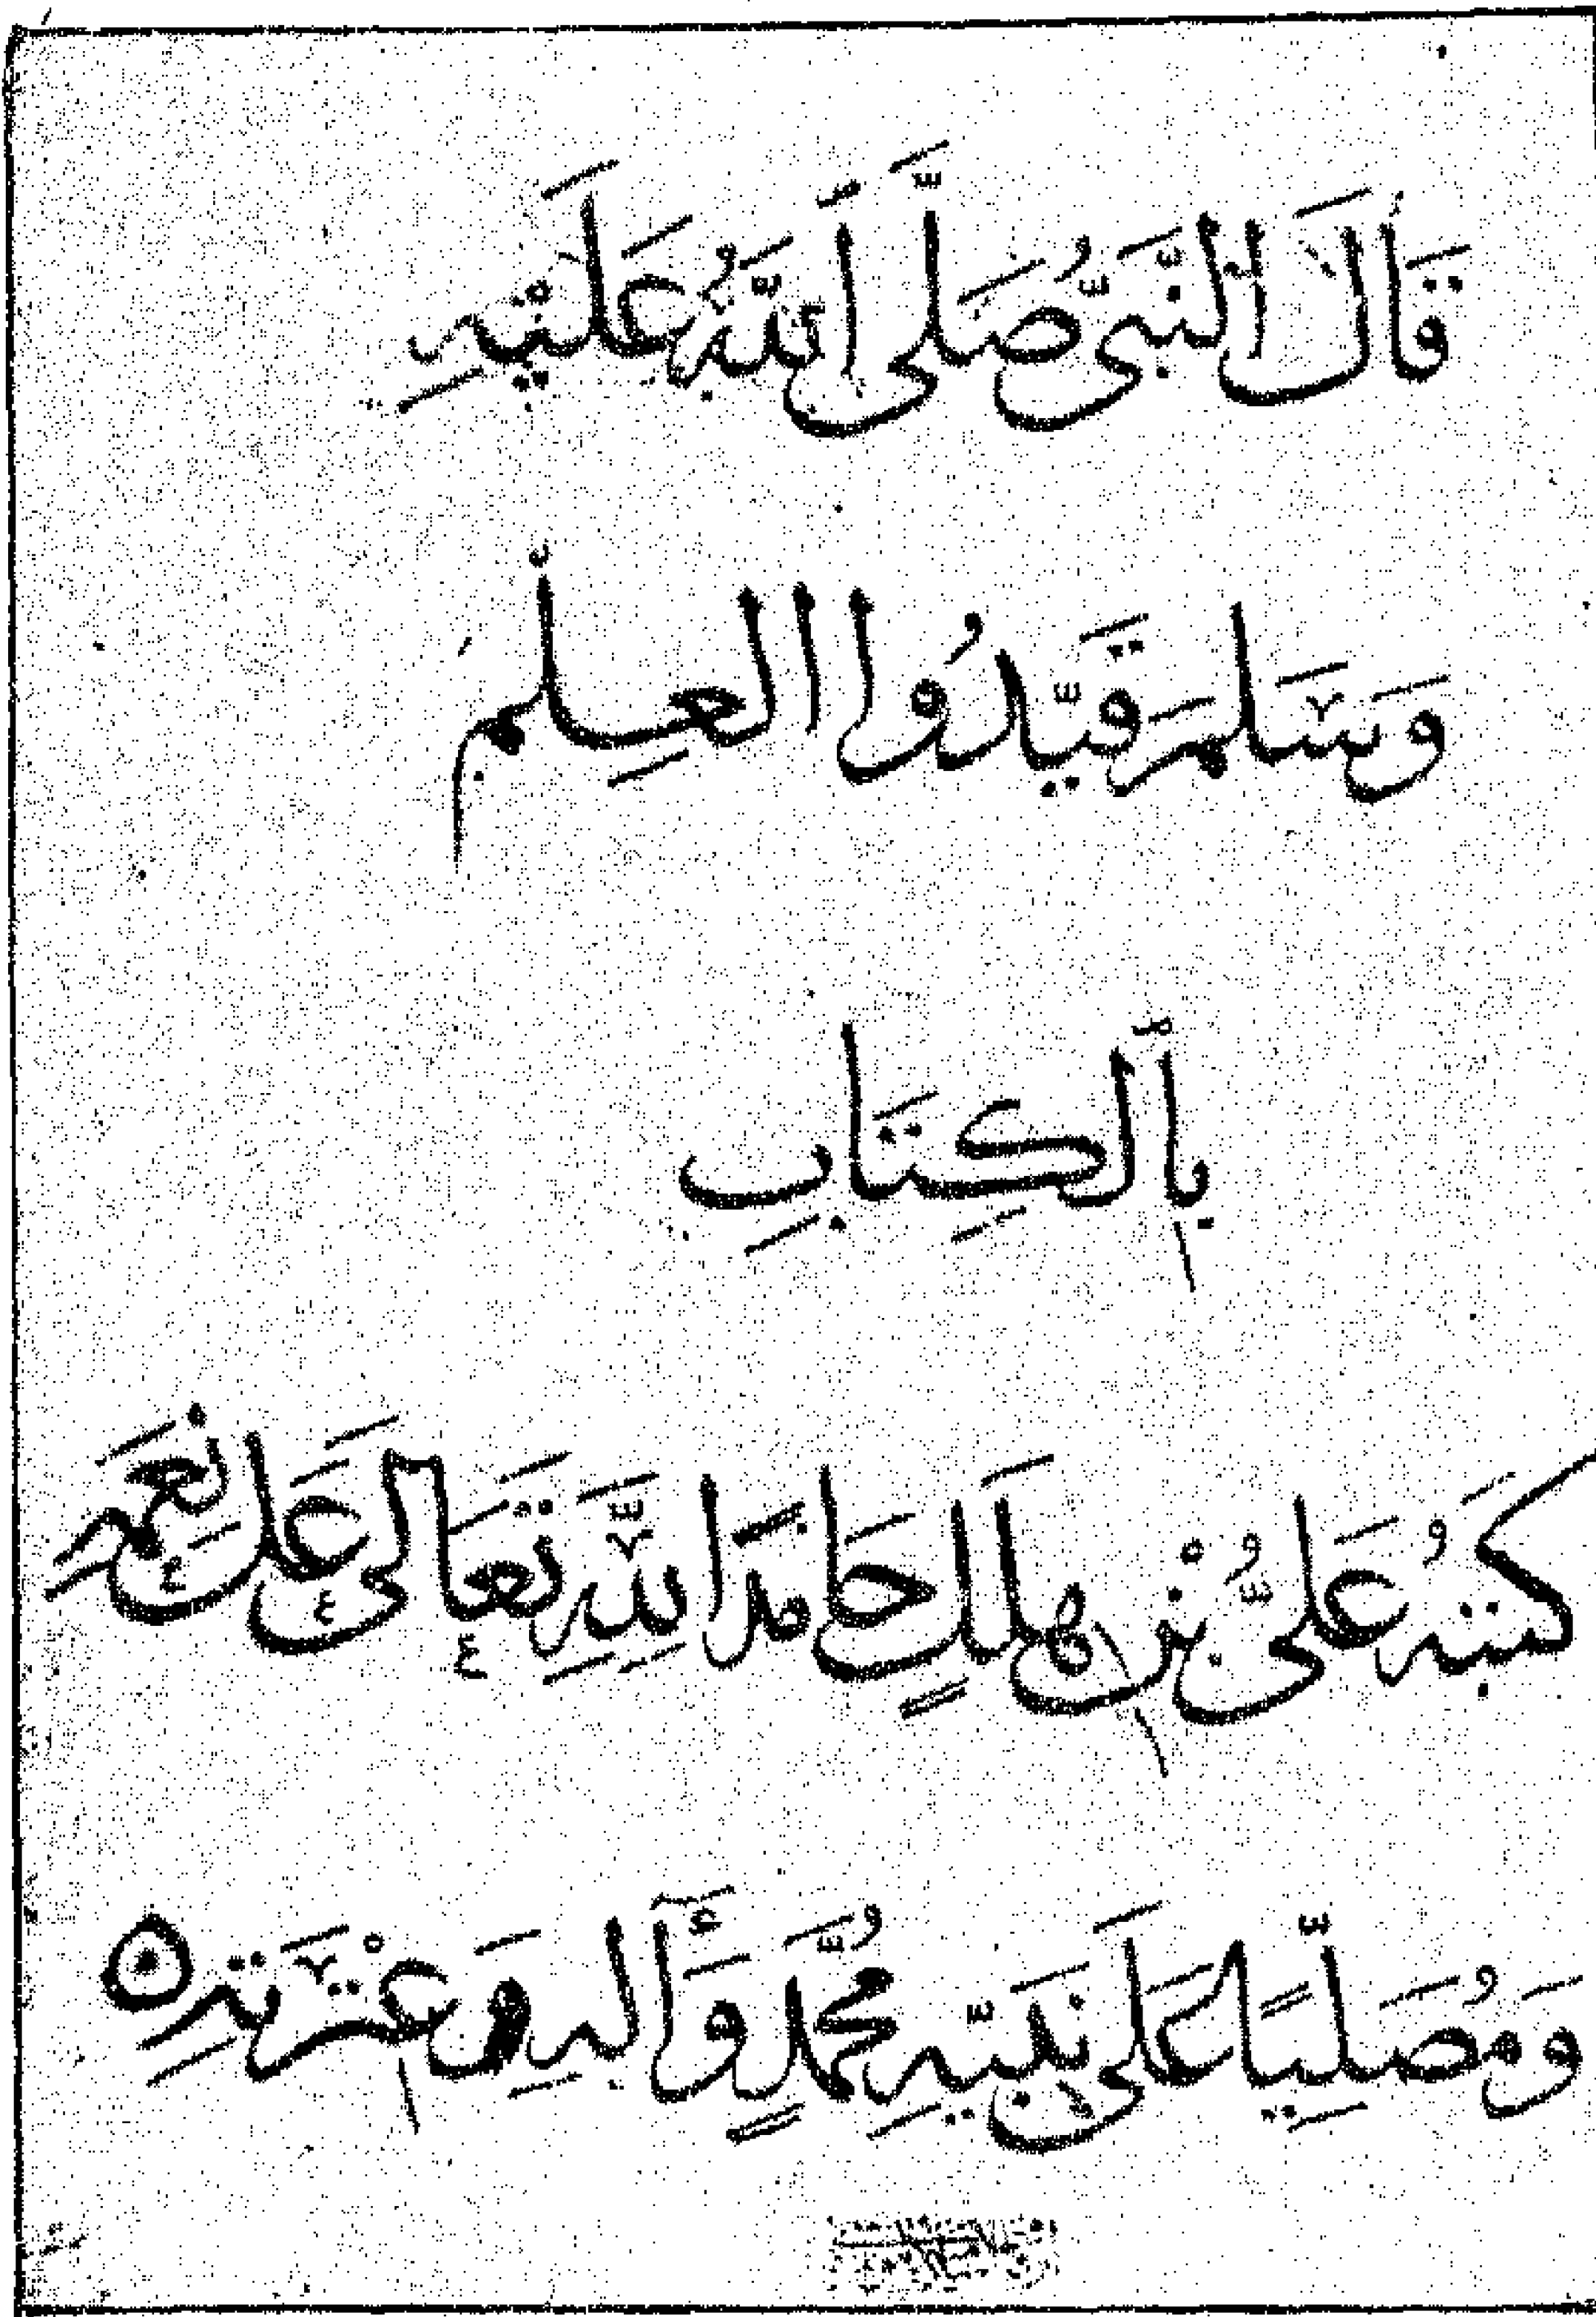 قَالَ النَّبِيُّ صَلَّى اللَّهُ عَلَيْهِ
وَسَلَّمَ قَيِّدُوا العِلْمَ
بِالكِتَابِ
كَتَبَهُ عَلِيُّ بْنُ هِلَالٍ حَامِدًا لِلَّهِ تَعَالَى عَلَى نِعَمِهِ
وَمُصَلِّيًا عَلَى نَبِيِّهِ مُحَمَّدٍ وَآلِهِ وَعِتْرَتِهِ